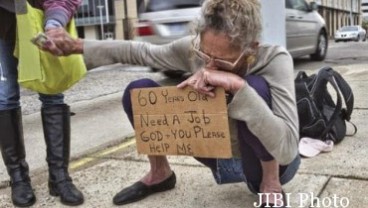 JIBI PHOTO
60 Years Old
Need A Job
GOD-YOU Please
Help me
JIBI Photo